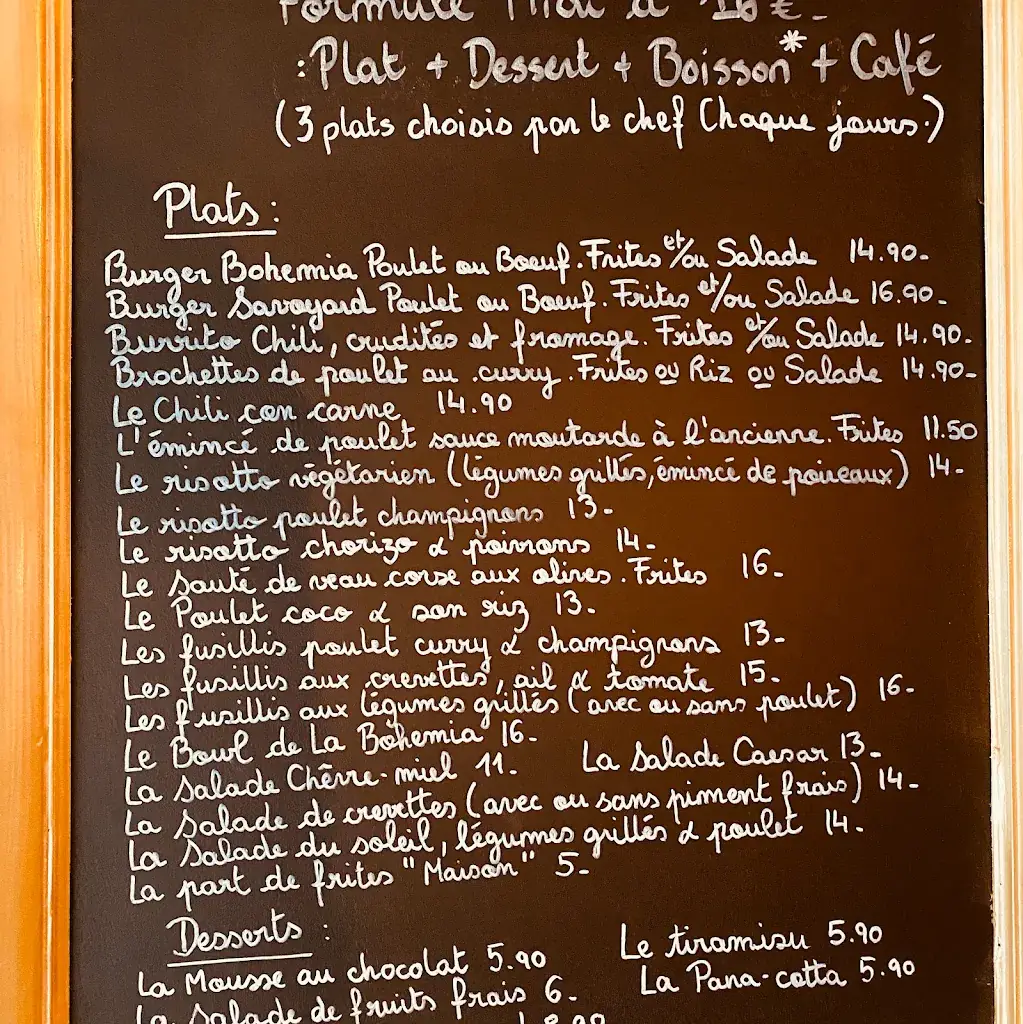 Formule Midi à 16€.-
: Plat + Dessert + Boisson* + Café
(3 plats choisis par le chef Chaque jours.)
Plats :
Burger Bohemia Poulet ou Boeuf. Frites et/ou Salade 14.90-
Burger Savoyard Poulet ou Boeuf. Frites et/ou Salade 16.90-
Burrito Chili, crudités et fromage. Frites et/ou Salade 14.90-
Brochettes de poulet au curry. Frites ou Riz ou Salade 14.90-
Le Chili con carne 14.90
L'émincé de poulet sauce moutarde à l'ancienne. Frites 11.50
Le risotto végétarien (légumes grillés, émincé de poireaux) 14-
Le risotto poulet champignons 13-
Le risotto chorizo & poivrons 14-
Le Sauté de veau corse aux olives. Frites 16-
Le Poulet coco & son riz 13-
Les fusillis poulet curry & champignons 13-
Les fusillis aux crevettes, ail & tomate 15-
Les fusillis aux légumes grillés (avec ou sans poulet) 16-
Le Bowl de La Bohemia 16-
La Salade Chèvre-miel 11- La Salade Caesar 13-
La Salade de crevettes (avec ou sans piment frais) 14-
La Salade du soleil, légumes grillés & poulet 14-
La part de frites "Maison" 5-
Desserts :
La Mousse au chocolat 5.90 Le tiramisu 5.90
La Salade de fruits frais 6- La Pana-cotta 5.90